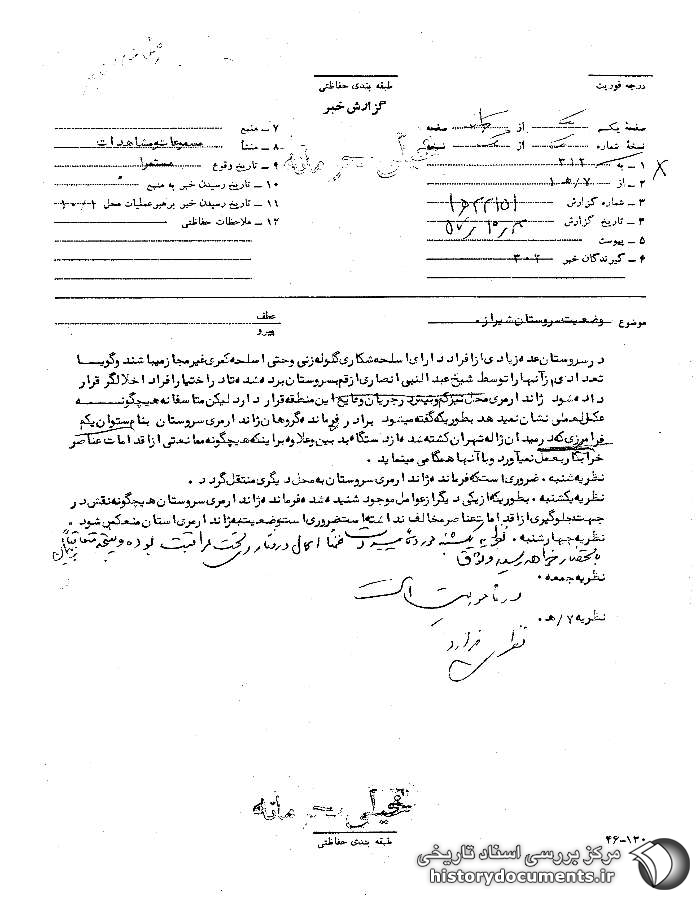 درجه فوریت
طبقه بندی حفاظتی
گزارش خبر
صفحهٔ یک از صفحه
نسخهٔ شماره از نسخه
۱ – به ۳۱۲
۲ – از ۷/ه‍ ۱
۳ – شماره گزارش
۴ – تاریخ گزارش
۵ – پیوست
۶ – گیرندگان خبر ۳۰۲
۷ – منبع
۸ – منشأ مسموعات ومشاهدات
۹ – تاریخ وقوع مستمرا
۱۰ – تاریخ رسیدن خبر به منبع
۱۱ – تاریخ رسیدن خبر برهبر عملیات محل
۱۲ – ملاحظات حفاظتی
موضوع وضعیت سروستان شیراز
عطف
پیرو
در سروستان عده زیادی از افراد دارای اسلحه شکاری گلوله زنی وحتی اسلحه کمری غیر مجاز میباشند وگویا
تعدادی از آنها را توسط شیخ عبد النبی انصاری از قم بسروستان برده شده تا در اختیار افراد اخلالگر قرار
داده شود ژاندارمری محل در جریان وقایع این منطقه قرار دارد لیکن متاسفانه هیچگونه
عکس العملی نشان نمیدهد بطوریکه گفته میشود برادر فرمانده گروهان ژاندارمری سروستان بنام ستوان یکم
فرامرزی که در میدان ژاله تهران کشته شده از دستگاه بدبین وعلاوه بر اینکه هیچگونه ممانعتی از اقدامات عناصر
خرابکار بعمل نمیآورد وبا آنها همگامی مینماید .
نظریه شنبه . ضروری است که فرمانده ژاندارمری سروستان به محل دیگری منتقل گردد .
نظریه یکشنبه . بطوریکه از یکی دیگر از عوامل موجود شنیده شده فرمانده ژاندارمری سروستان هیچگونه نقشی در
جهت جلوگیری از اقدامات عناصر مخالف نداشته است ضروری است وضعیت به ژاندارمری استان منعکس شود .
نظریه چهارشنبه . نظریه یکشنبه مورد تایید است ضمنا اعمال و رفتار وی تحت مراقبت بوده و نتیجه متعاقبا
باستحضار خواهد رسید
نظریه جمعه .
در ماموریت است
نظریه ۷/ه‍ .
نظری ندارد
خیلی محرمانه
طبقه بندی حفاظتی
۱۳۰–۴۶
مرکز بررسی اسناد تاریخی
historydocuments.ir